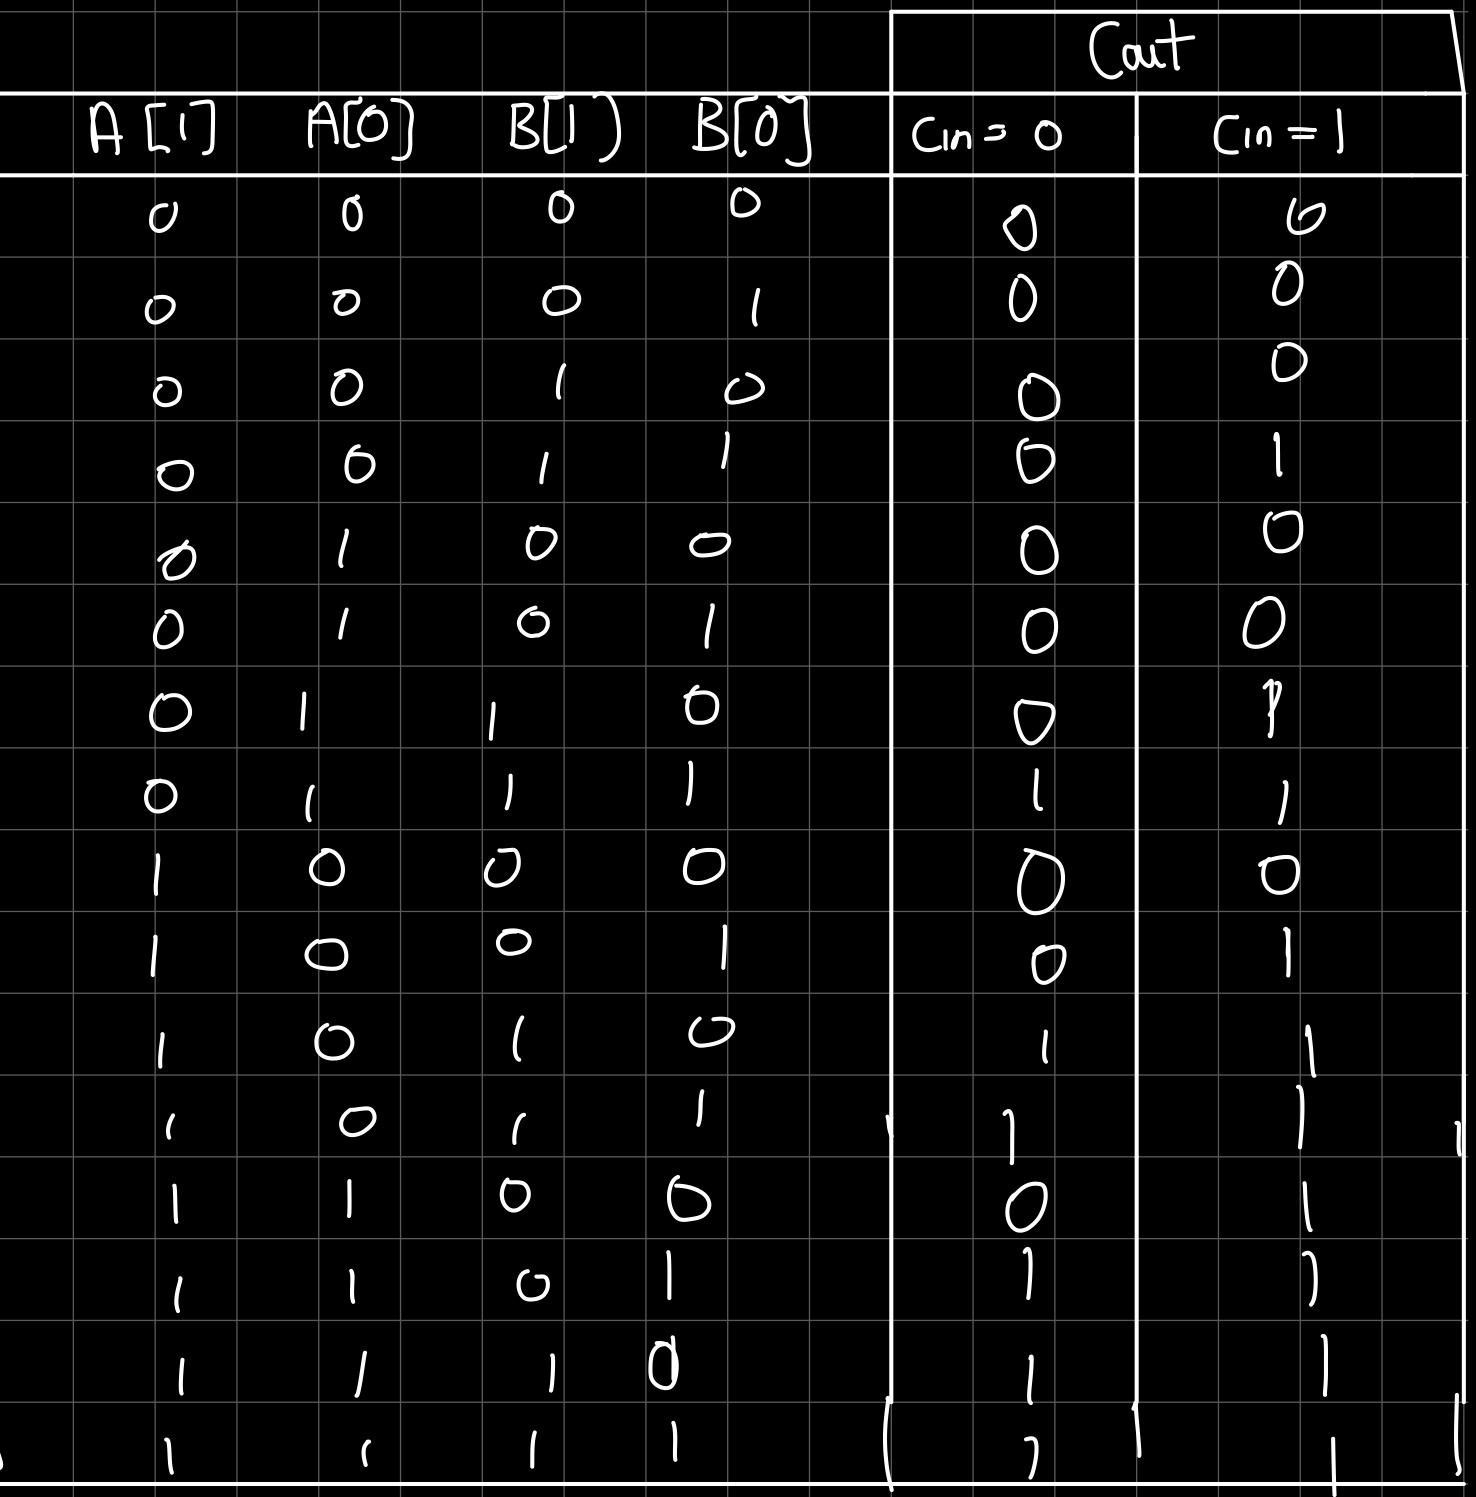 Cout
A[1] A[0] B[1) B[0] Cin = 0 Cin = 1
0 0 0 0 0 0
0 0 0 1 0 0
0 0 1 0 0 0
0 0 1 1 0 1
0 1 0 0 0 0
0 1 0 1 0 0
0 1 1 0 0 1
0 1 1 1 1 1
1 0 0 0 0 0
1 0 0 1 0 1
1 0 1 0 1 1
1 0 1 1 1 1
1 1 0 0 0 1
1 1 0 1 1 1
1 1 1 0 1 1
1 1 1 1 1 1